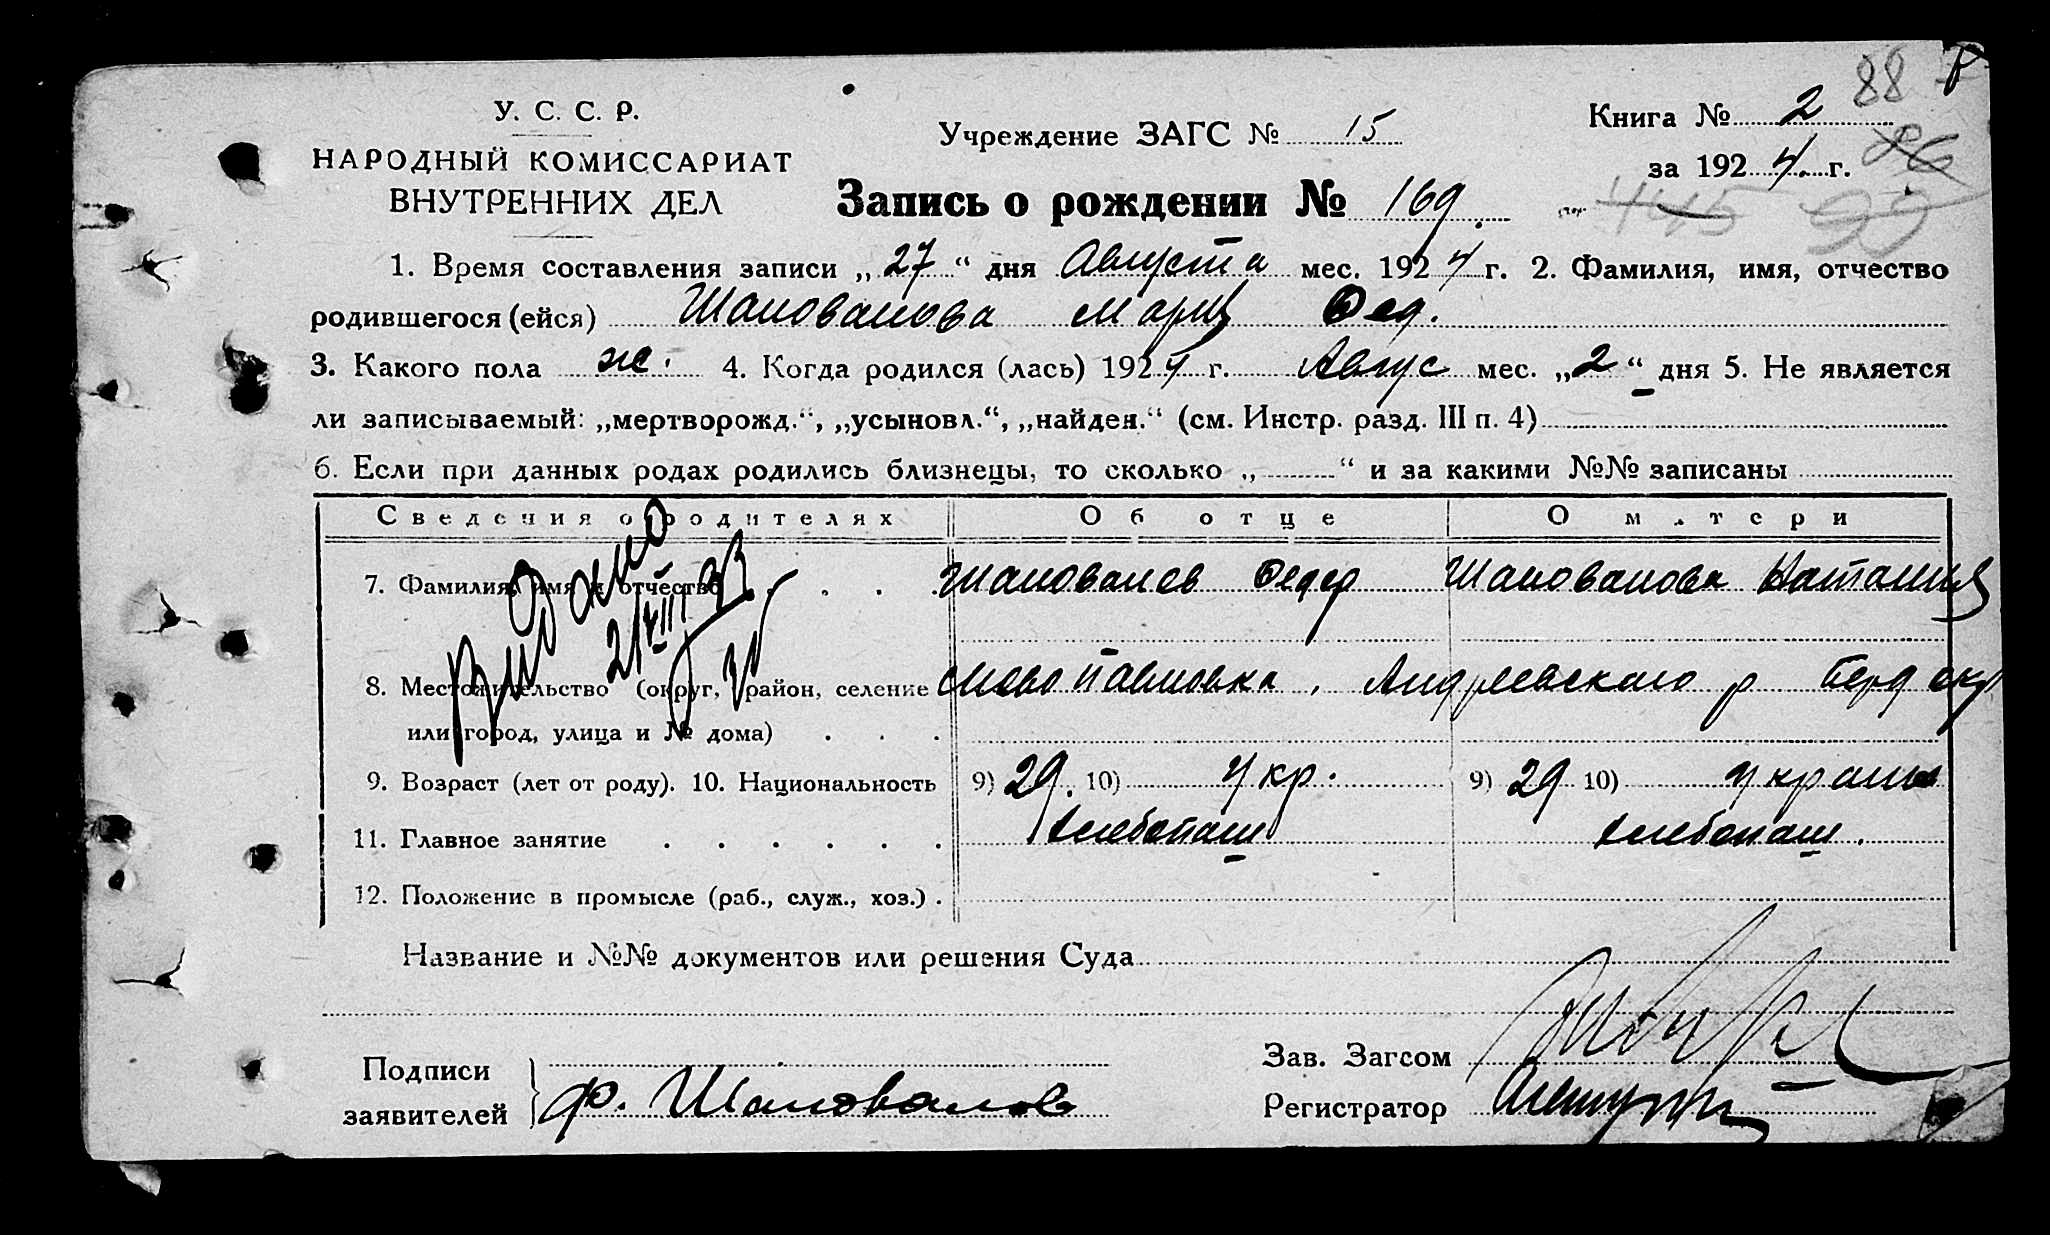 88
У. С. С. Р.
НАРОДНЫЙ КОМИССАРИАТ
ВНУТРЕННИХ ДЕЛ
Учреждение ЗАГС № 15
Книга № 2
за 1924 г. 86
Запись о рождении № 169. 445 99
1. Время составления записи „27“ дня Августа мес. 1924 г. 2. Фамилия, имя, отчество
родившегося (ейся) Шаповалова Мария Фед.
3. Какого пола ж. 4. Когда родился (лась) 1924 г. Авгус мес. „2“ дня 5. Не является
ли записываемый: „мертворожд.“, „усыновл.“, „найден.“ (см. Инстр. разд. III п. 4)
6. Если при данных родах родились близнецы, то сколько „ “ и за какими №№ записаны
Сведения о родителях Об отце О матери
7. Фамилия, имя и отчество . . . . Шаповалов Федор Шаповалова Наталия
Видано 21/VIII 33
8. Местожительство (округ, район, селение Ново Павловка, Андреевского р Берд окр
или город, улица и № дома) . . .
9. Возраст (лет от роду). 10. Национальность 9) 29. 10) Укр. 9) 29 10) Украин
11. Главное занятие . . . . . . хлебопаш хлебопаш.
12. Положение в промысле (раб., служ., хоз.) .
Название и №№ документов или решения Суда
Подписи
заявителей
Ф. Шаповалов
Зав. Загсом
Регистратор